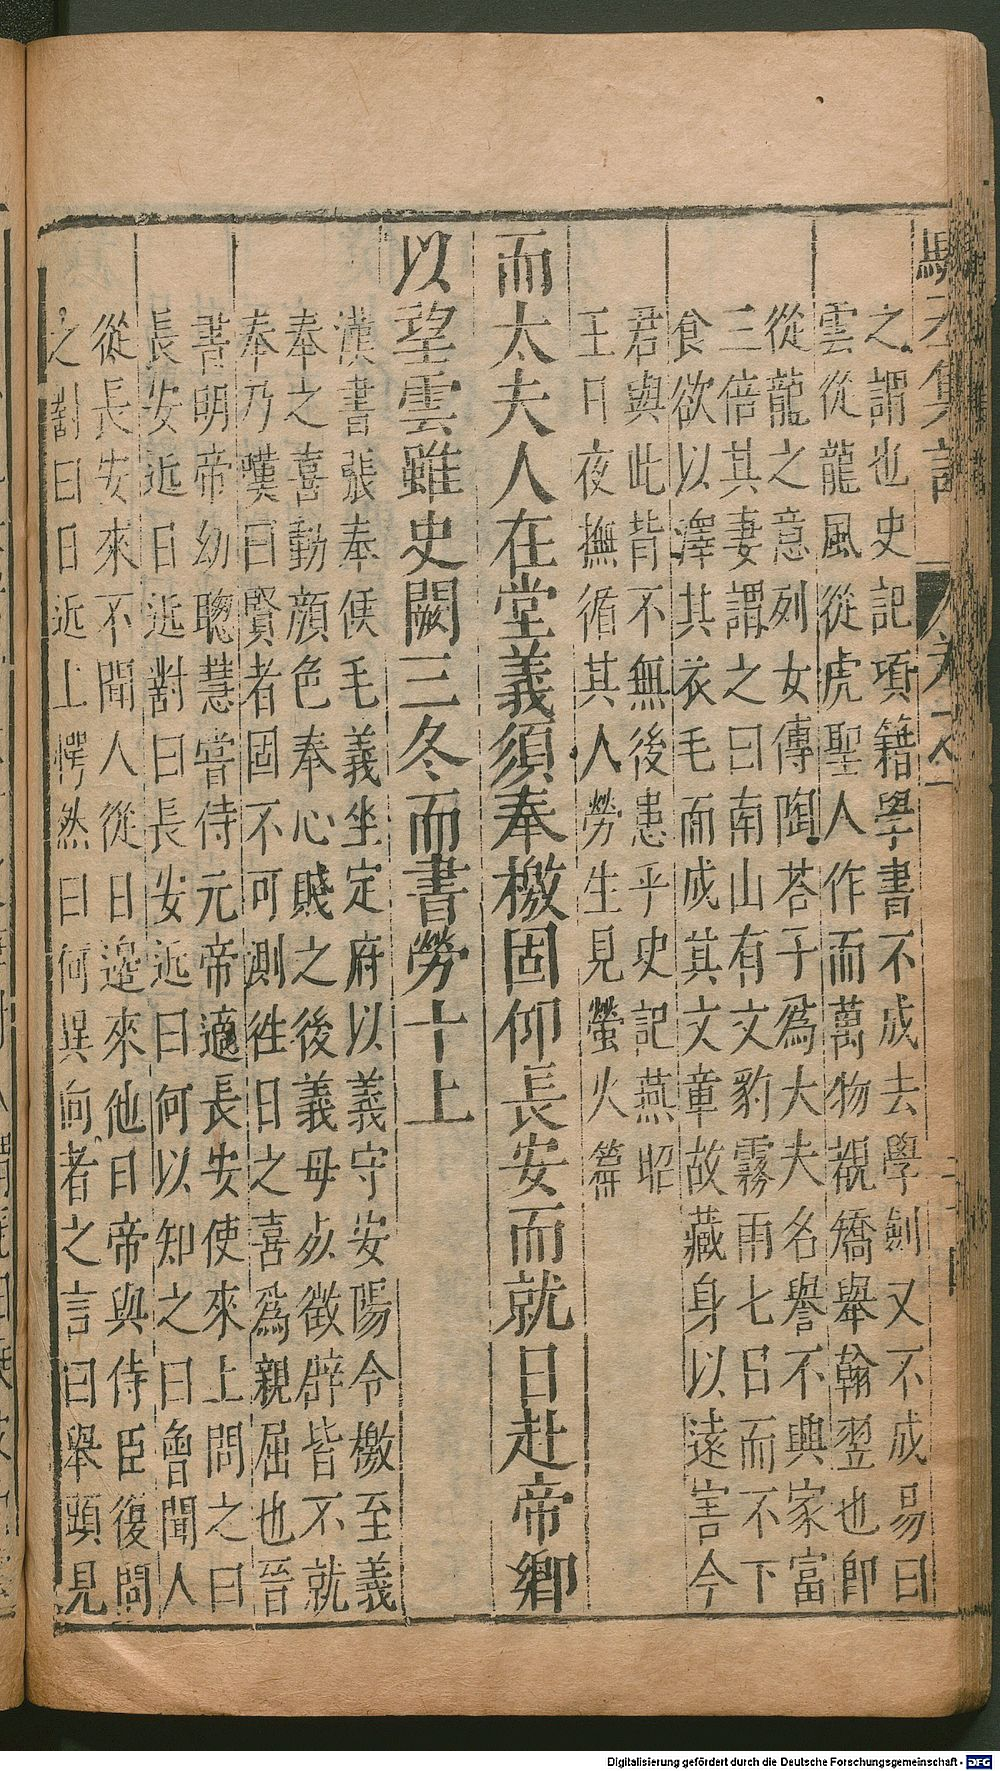 之謂也史記項籍學書不成去學劍又不成易曰
雲從龍風從虎聖人作而萬物覩矯舉翰翌也卽
從龍之意列女傳陶荅子爲大夫名譽不興家富
三倍其妻謂之曰南山有文豹霧雨七日而不下
食欲以澤其衣毛而成其文章故藏身以遠害今
君與此背不無後患乎史記燕昭
王日夜撫循其人勞生見螢火篇
而太夫人在堂義須奉檄固仰長安而就日赴帝鄉
以望雲雖史闕三冬而書勞十上
漢書張奉候毛義坐定府以義守安陽令檄至義
奉之喜動顏色奉心賤之後義母歿徵辟皆不就
奉乃嘆曰賢者固不可測徃日之喜爲親屈也晉
書明帝幼聰慧嘗侍元帝適長安使來上問之曰
長安近日近對曰長安近曰何以知之曰曾聞人
從長安來不聞人從日邊來他日帝與侍臣復問
之對曰日近上愕然曰何異向者之言曰舉頭見
Digitalisierung gefördert durch die Deutsche Forschungsgemeinschaft - DFG